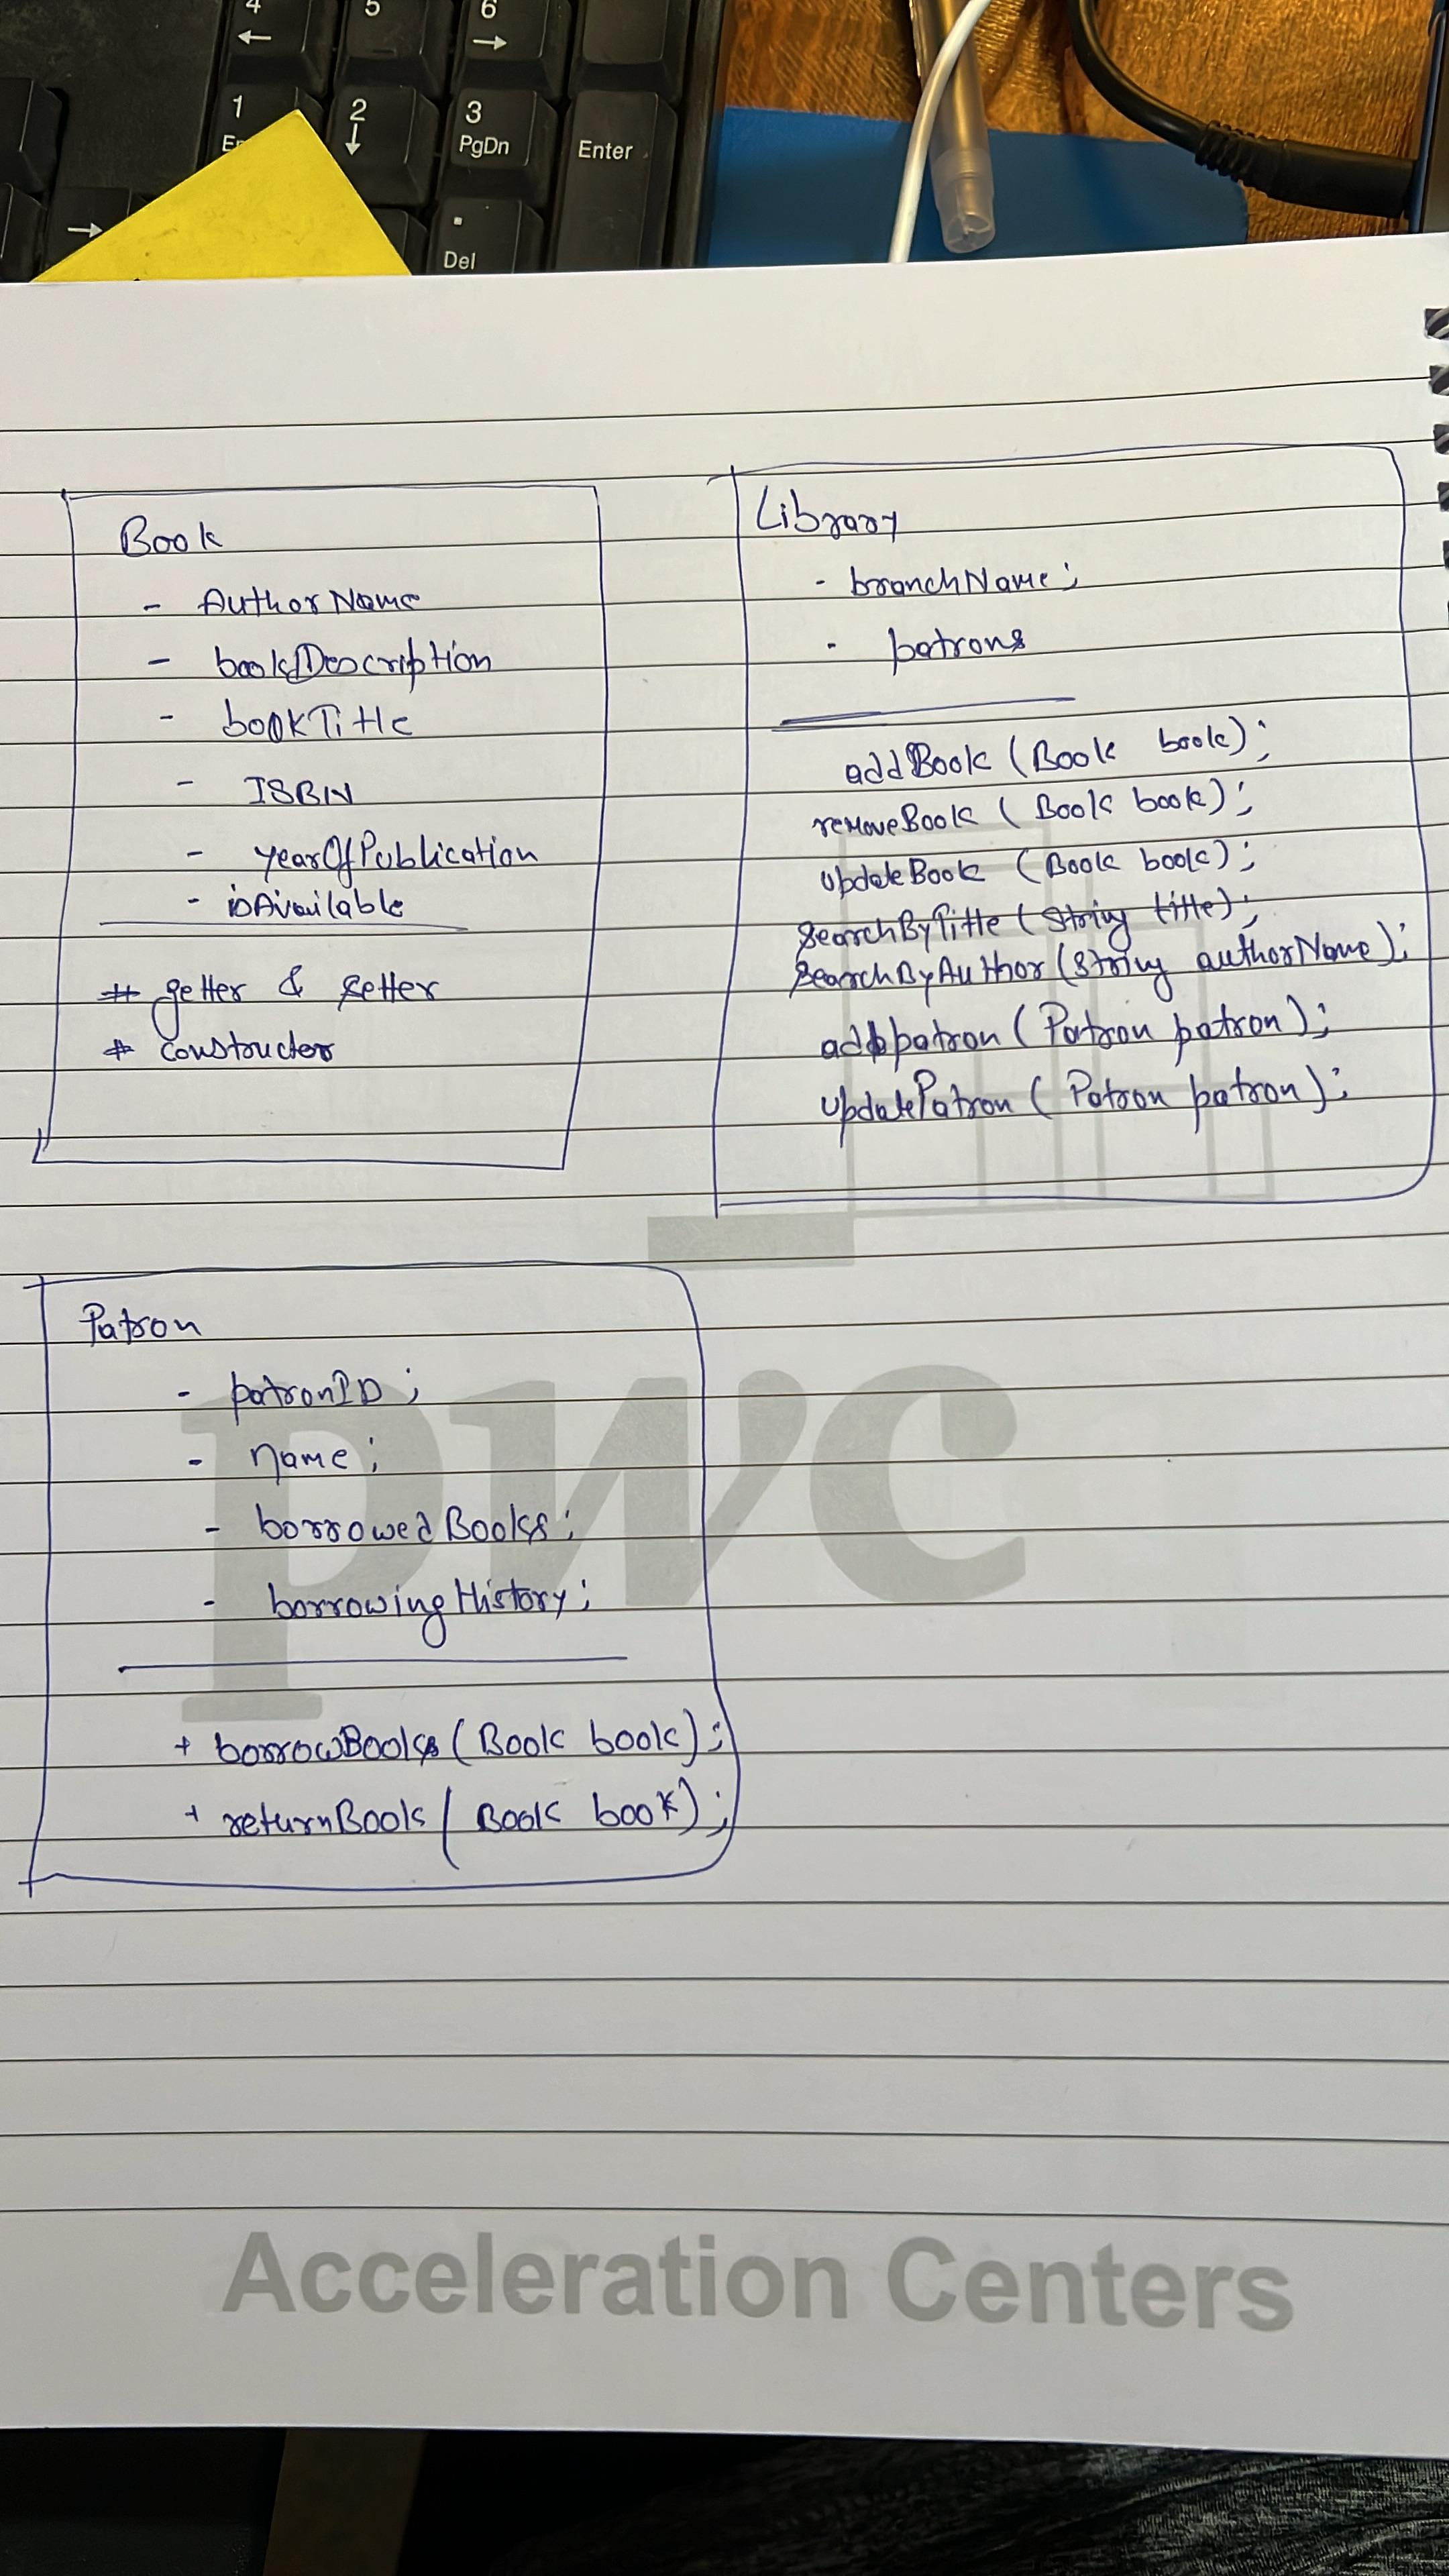 4
5
6
←
→
1
2
3
↓
PgDn
Enter
→
.
Del
Book
- AuthorName
- bookDescription
- bookTitle
- ISBN
- yearOfPublication
- isAvailable
# getter & setter
# constructer
Library
- branchName;
- patrons
addBook (Book book);
removeBook (Book book);
updateBook (Book book);
searchByTitle (String title);
searchByAuthor (String authorName);
addpatron (Patron patron);
updatePatron (Patron patron);
Patron
- patronID;
- name;
- borrowedBooks;
- borrowingHistory;
+ borrowBooks (Book book);
+ returnBook (Book book);
pwc
Acceleration Centers